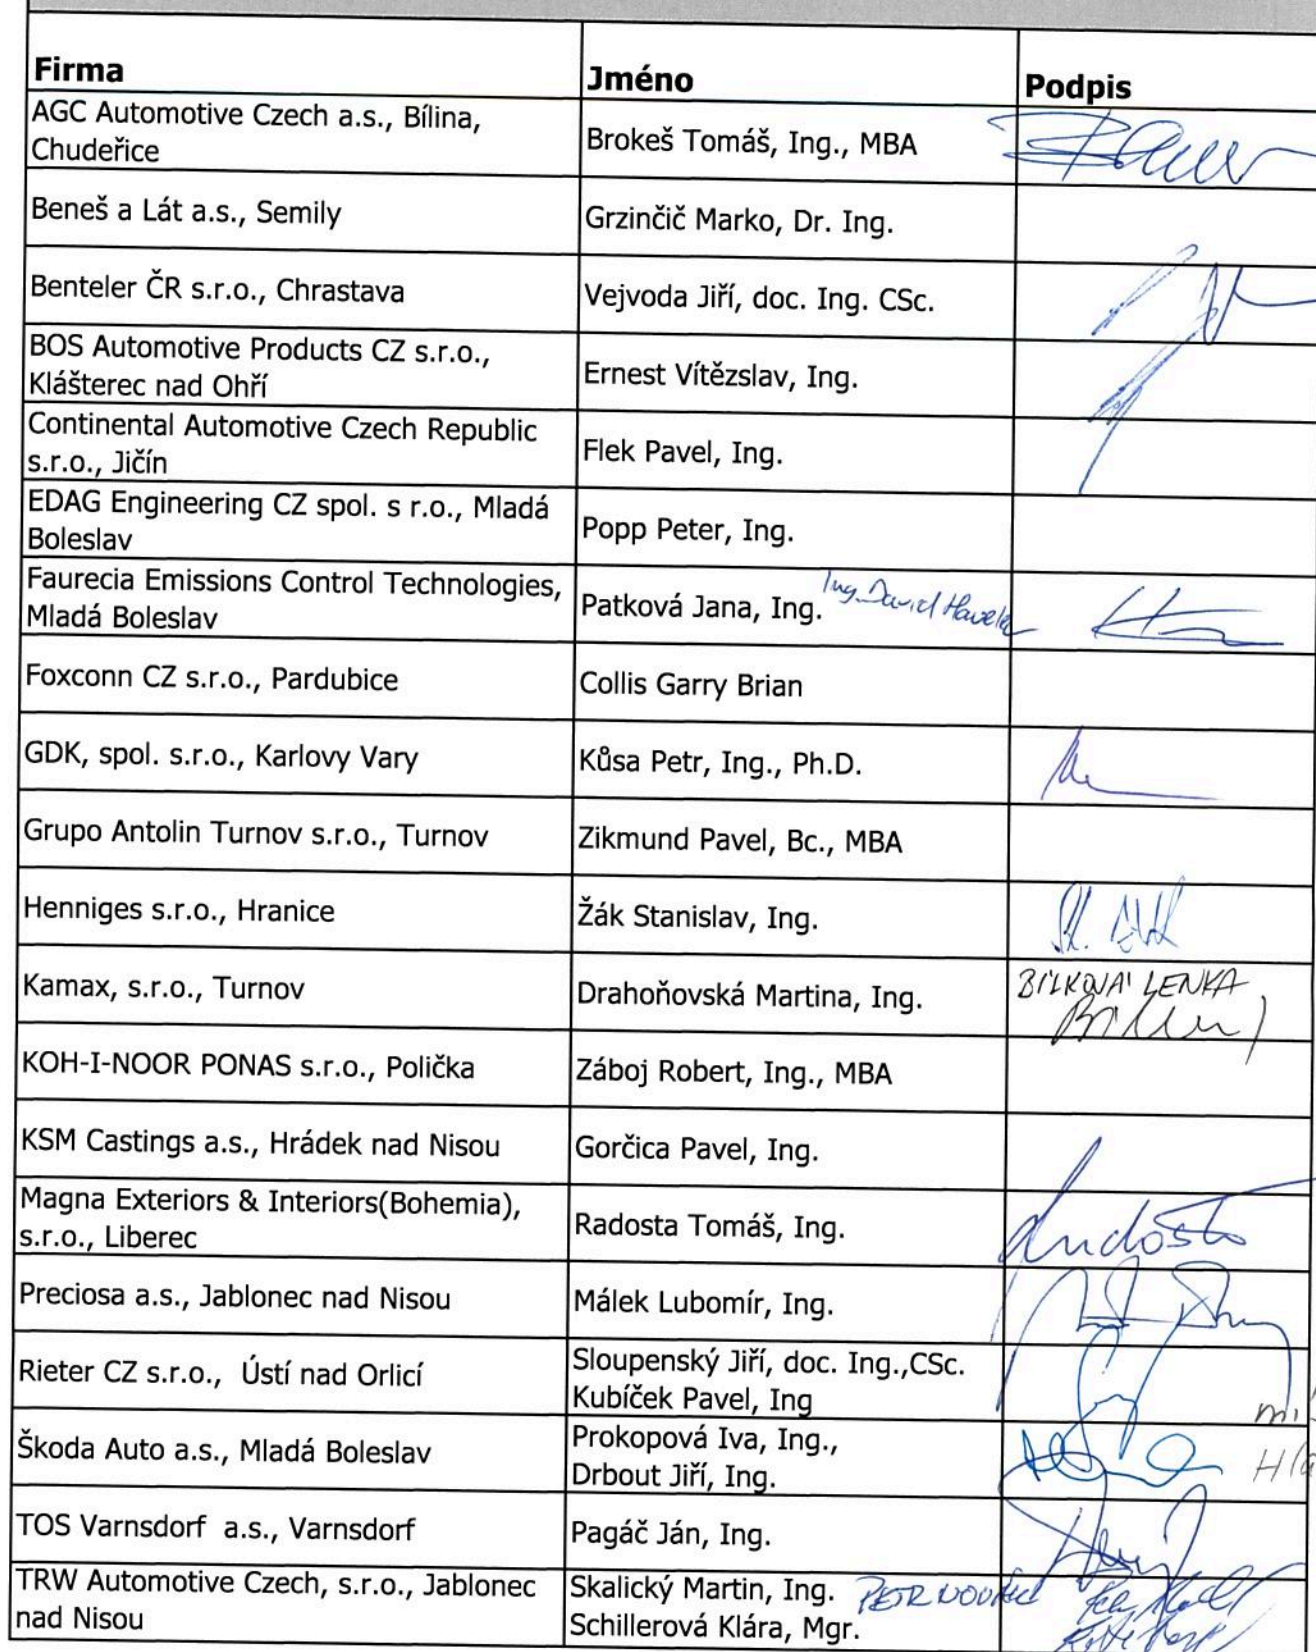 Firma
Jméno
Podpis
AGC Automotive Czech a.s., Bílina,
Chudeřice
Brokeš Tomáš, Ing., MBA
Beneš a Lát a.s., Semily
Grzinčič Marko, Dr. Ing.
Benteler ČR s.r.o., Chrastava
Vejvoda Jiří, doc. Ing. CSc.
BOS Automotive Products CZ s.r.o.,
Klášterec nad Ohří
Ernest Vítězslav, Ing.
Continental Automotive Czech Republic
s.r.o., Jičín
Flek Pavel, Ing.
EDAG Engineering CZ spol. s r.o., Mladá
Boleslav
Popp Peter, Ing.
Faurecia Emissions Control Technologies,
Mladá Boleslav
Patková Jana, Ing.
Ing. David Havelka
Foxconn CZ s.r.o., Pardubice
Collis Garry Brian
GDK, spol. s.r.o., Karlovy Vary
Kůsa Petr, Ing., Ph.D.
Grupo Antolin Turnov s.r.o., Turnov
Zikmund Pavel, Bc., MBA
Henniges s.r.o., Hranice
Žák Stanislav, Ing.
Kamax, s.r.o., Turnov
Drahoňovská Martina, Ing.
BÍLKOVÁ LENKA
KOH-I-NOOR PONAS s.r.o., Polička
Záboj Robert, Ing., MBA
KSM Castings a.s., Hrádek nad Nisou
Gorčica Pavel, Ing.
Magna Exteriors & Interiors(Bohemia),
s.r.o., Liberec
Radosta Tomáš, Ing.
Preciosa a.s., Jablonec nad Nisou
Málek Lubomír, Ing.
Rieter CZ s.r.o.,  Ústí nad Orlicí
Sloupenský Jiří, doc. Ing.,CSc.
Kubíček Pavel, Ing
Škoda Auto a.s., Mladá Boleslav
Prokopová Iva, Ing.,
Drbout Jiří, Ing.
TOS Varnsdorf  a.s., Varnsdorf
Pagáč Ján, Ing.
TRW Automotive Czech, s.r.o., Jablonec
nad Nisou
Skalický Martin, Ing.
PETR NOVÁK
Schillerová Klára, Mgr.